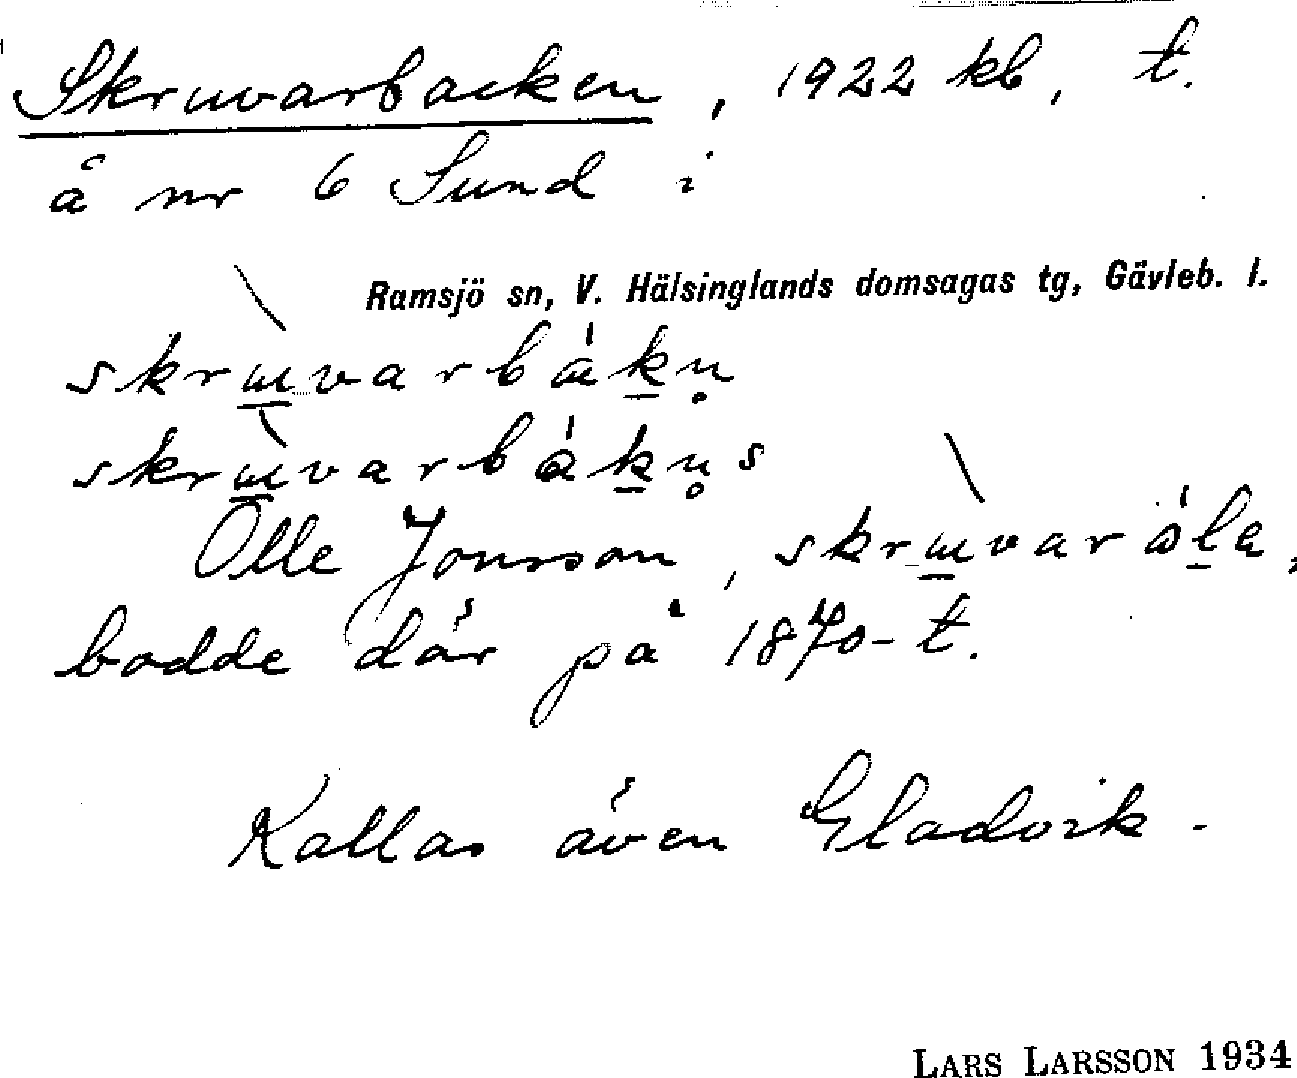 Skruvarbacken, 1922 kb, t.
å nr 6 Sund i
Ramsjö sn, V. Hälsinglands domsagas tg, Gävleb. l.
skrɯ̀varbákn̥
skrɯ̀varbákn̥s
Olle Jonsson, skrɯ̀varóla,
bodde där på 1870-t.
Kallas även Gladvik.
LARS LARSSON 1934